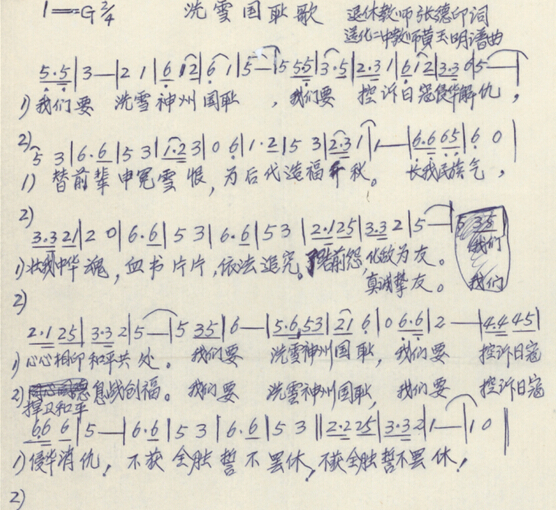 1=G 2/4 洗雪国耻歌 退休教师张德印词
遵化二中教师黄玉明谱曲
5·5|3—|2 1|6 12|6 1|5—|5 55|3·5|2·31|612|3·36|5—|
1)我们要 洗雪神州国耻，我们要 控诉日寇侵华解仇，
2)
5 3|6·6|5 3|1·23|0 6|1·2|5 3|2·31|1—|6·665|6 0|
1)替前辈申冤雪恨，为后代造福千秋。长我民族气，
2)
3·321|2 0|6·6|5 3|6·6|5 3|2·125|3·32|5—|5 35|
1)壮我中华魂，血书片片，依法追究。 前怨化敌为友。 我们
真诚挚友。 我们
2)
2·125|3·32|5—|5 35|6—|5·653|216|0 6·6|2—|4·445|
1)心心相印和平共处。我们要 洗雪神州国耻，我们要 控诉日寇
2) 息战创福。我们要 洗雪神州国耻，我们要 控诉日寇
捍卫和平
66 6|5—|6·6|5 3|6·6|5 3||2·225|3·32|1—|1 0||
1)侵华消仇，不获全胜誓不罢休，不获全胜誓不罢休！
2)